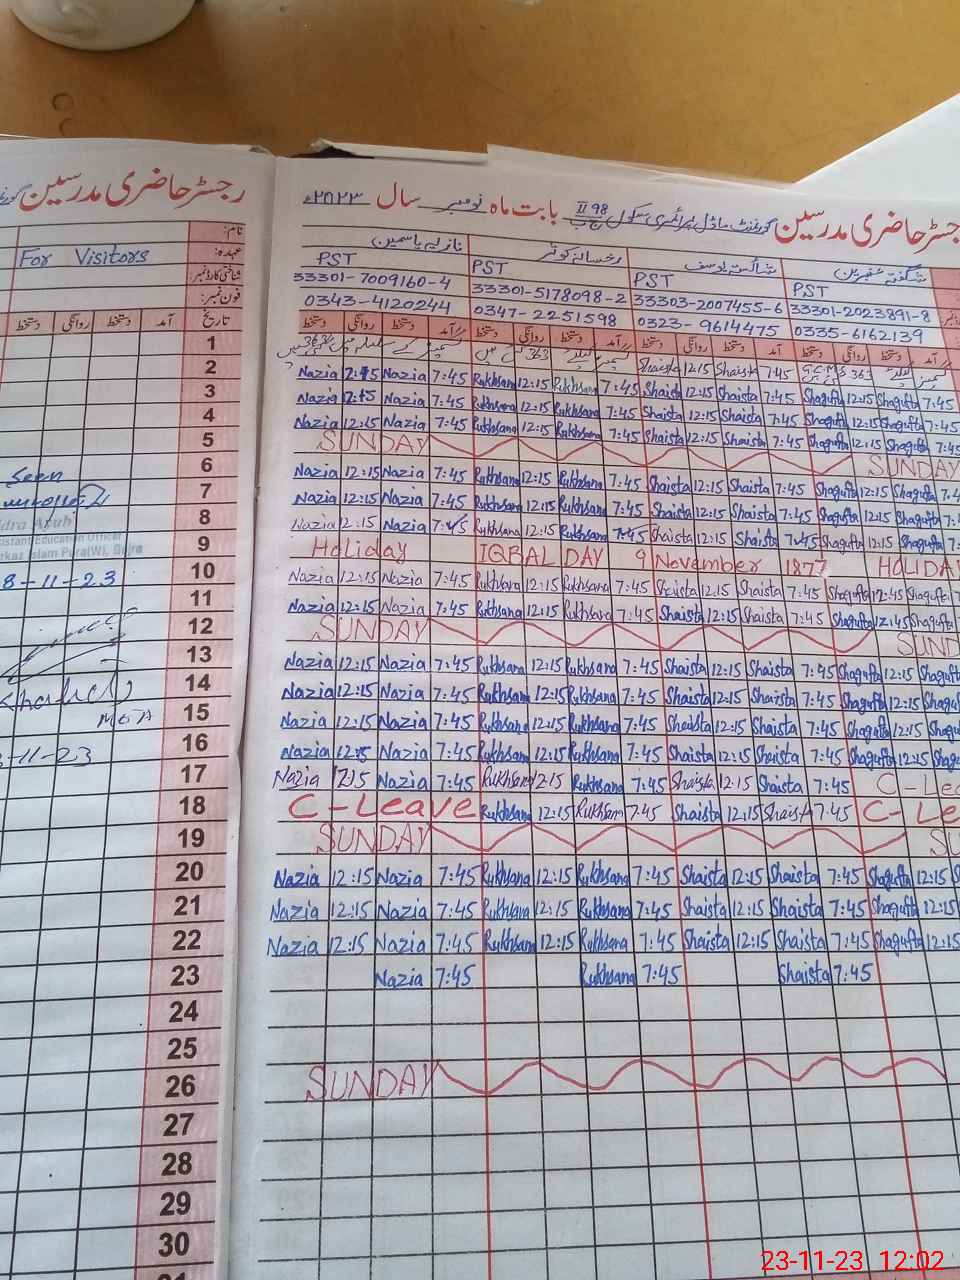 رجسٹر حاضری مدرسین
نام:
عہدہ: For Visitors
شناختی کارڈ نمبر:
فون نمبر:
تاریخ آمد دستخط روانگی دستخط
1
2
3
4
5
6
7
8
9
10
11
12
13
14
15
16
17
18
19
20
21
22
23
24
25
26
27
28
29
30
31
Seen
Assistant Education Officer
Markaz Islam Pura(W),
8-11-23
MEA
-11-23
رجسٹر حاضری مدرسین گورنمنٹ ماڈل پرائمری سکول 98 II ج ب بابت ماہ نومبر سال ۲۰۲۳ء
نازیہ یاسمین رخسانہ کوثر شائستہ یوسف شگفتہ
PST PST PST PST
33301-7009160-4 33301-5178098-2 33303-2007455-6 33301-2023891-8
0343-4120244 0347-2251598 0323-9614475 0335-6162139
دستخط روانگی دستخط آمد دستخط روانگی دستخط آمد دستخط روانگی دستخط آمد دستخط روانگی دستخط آمد
Shaista 12:15 Shaista 7:45
Nazia 12:15 Nazia 7:45 Rukhsana 12:15 Rukhsana 7:45 Shaista 12:15 Shaista 7:45 Shagufta 12:15 Shagufta 7:45
Nazia 12:15 Nazia 7:45 Rukhsana 12:15 Rukhsana 7:45 Shaista 12:15 Shaista 7:45 Shagufta 12:15 Shagufta 7:45
Nazia 12:15 Nazia 7:45 Rukhsana 12:15 Rukhsana 7:45 Shaista 12:15 Shaista 7:45 Shagufta 12:15 Shagufta 7:45
SUNDAY SUNDAY
Nazia 12:15 Nazia 7:45 Rukhsana 12:15 Rukhsana 7:45 Shaista 12:15 Shaista 7:45 Shagufta 12:15 Shagufta 7:4
Nazia 12:15 Nazia 7:45 Rukhsana 12:15 Rukhsana 7:45 Shaista 12:15 Shaista 7:45 Shagufta 12:15 Shagufta 7:4
Nazia 12:15 Nazia 7:45 Rukhsana 12:15 Rukhsana 7:45 Shaista 12:15 Shaista 7:45 Shagufta 12:15 Shagufta 7:
Holiday IQBAL DAY 9 November 1877 HOLIDAY
Nazia 12:15 Nazia 7:45 Rukhsana 12:15 Rukhsana 7:45 Shaista 12:15 Shaista 7:45 Shagufta 12:45 Shagufta 7:
Nazia 12:15 Nazia 7:45 Rukhsana 12:15 Rukhsana 7:45 Shaista 12:15 Shaista 7:45 Shagufta 12:45 Shagufta
SUNDAY SUND
Nazia 12:15 Nazia 7:45 Rukhsana 12:15 Rukhsana 7:45 Shaista 12:15 Shaista 7:45 Shagufta 12:15 Shagufta
Nazia 12:15 Nazia 7:45 Rukhsana 12:15 Rukhsana 7:45 Shaista 12:15 Shaista 7:45 Shagufta 12:15 Shagufta
Nazia 12:15 Nazia 7:45 Rukhsana 12:15 Rukhsana 7:45 Shaista 12:15 Shaista 7:45 Shagufta 12:15 Shagu
Nazia 12:15 Nazia 7:45 Rukhsana 12:15 Rukhsana 7:45 Shaista 12:15 Shaista 7:45 Shagufta 12:15 Shagu
Nazia 12:15 Nazia 7:45 Rukhsana 12:15 Rukhsana 7:45 Shaista 12:15 Shaista 7:45 C-Lea
C-Leave Rukhsana 12:15 Rukhsana 7:45 Shaista 12:15 Shaista 7:45 C-Le
SUNDAY SU
Nazia 12:15 Nazia 7:45 Rukhsana 12:15 Rukhsana 7:45 Shaista 12:15 Shaista 7:45 Shagufta 12:15 S
Nazia 12:15 Nazia 7:45 Rukhsana 12:15 Rukhsana 7:45 Shaista 12:15 Shaista 7:45 Shagufta 12:15
Nazia 12:15 Nazia 7:45 Rukhsana 12:15 Rukhsana 7:45 Shaista 12:15 Shaista 7:45 Shagufta 12:15
Nazia 7:45 Rukhsana 7:45 Shaista 7:45
SUNDAY
23-11-23 12:02